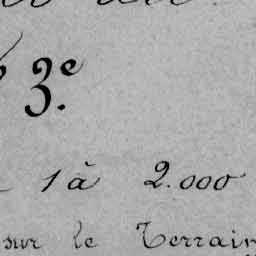 3e.
1 à 2.000
sur le Terrain